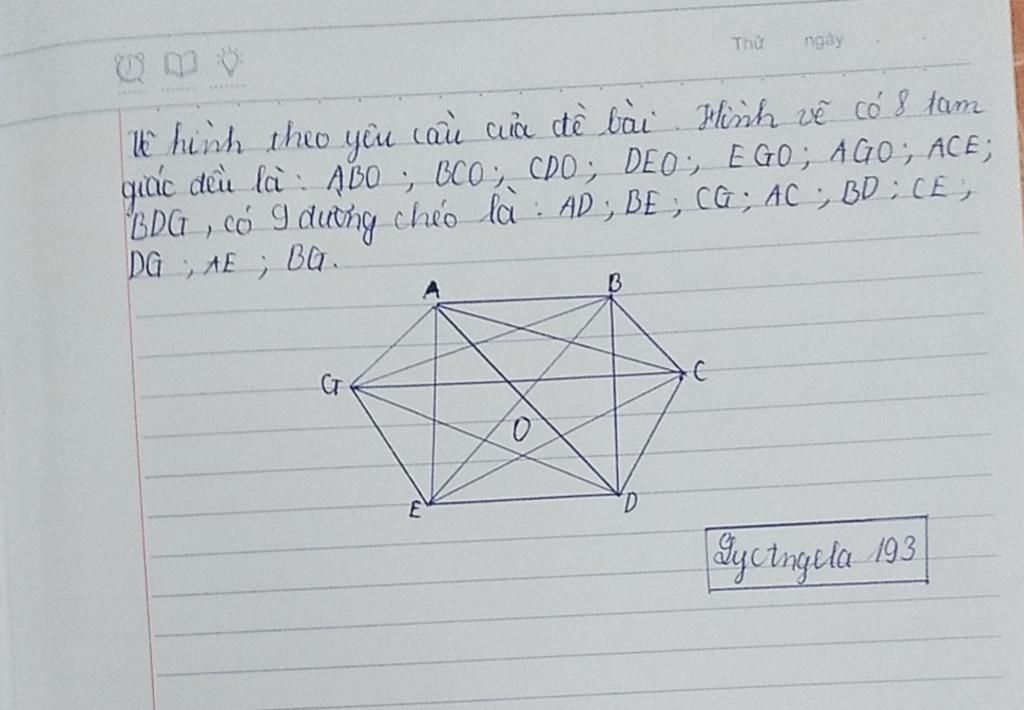 Thứ ngày
Vẽ hình theo yêu cầu của đề bài. Hình vẽ có 8 tam
giác đều là: ABO; BCO; CDO; DEO; EGO; AGO; ACE;
BDG, có 9 đường chéo là: AD; BE; CG; AC; BD; CE;
DG; AE; BG.
A B
G C
O
E D
193